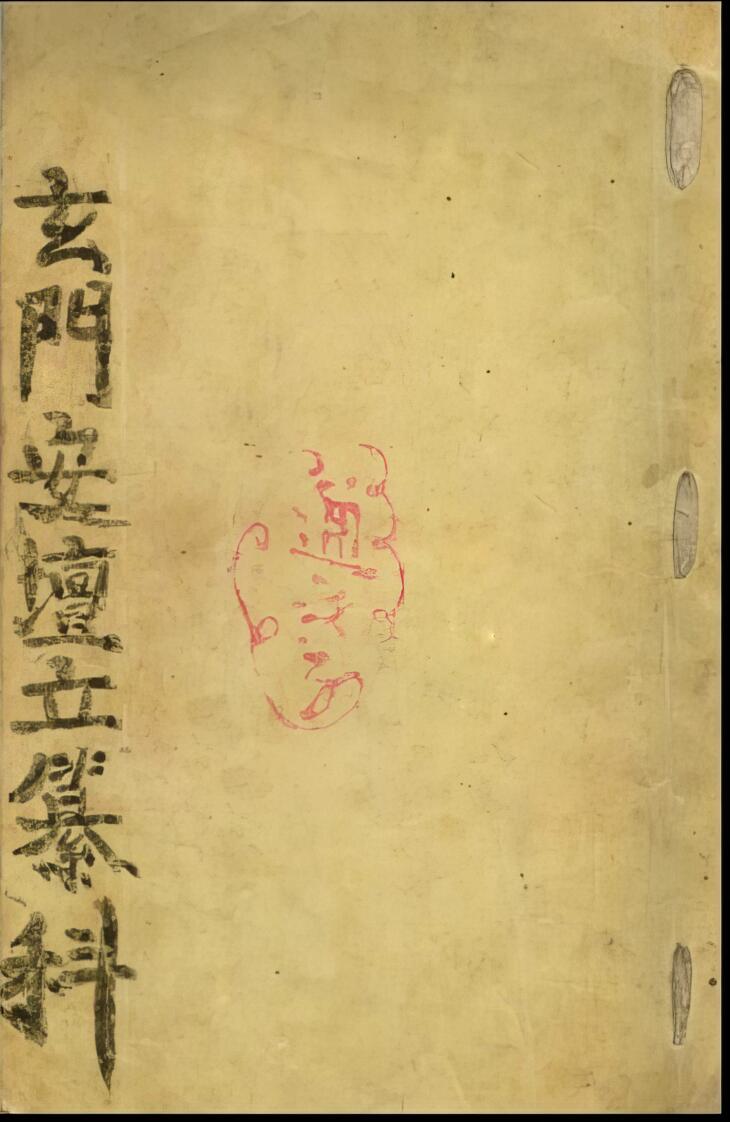 玄門安壇立纂科